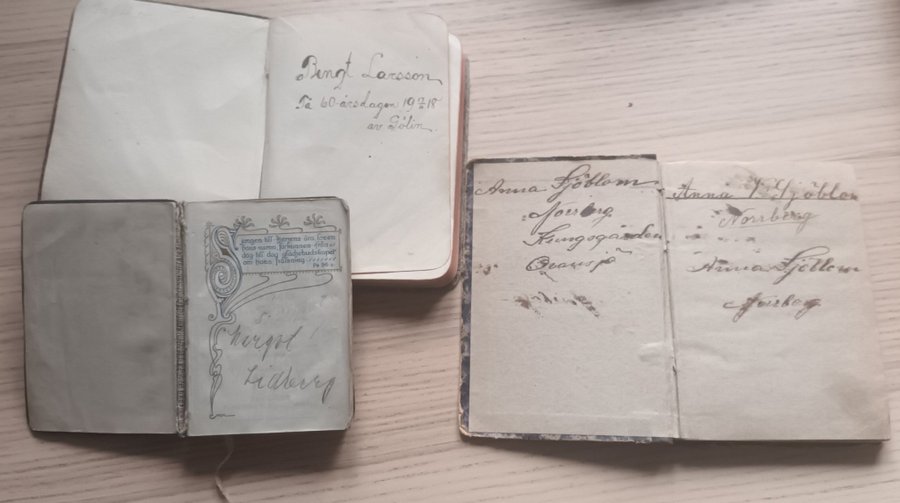 Bengt Larsson
På 60-årsdagen 19 2/2 18
av Gölin.
Sjungen till Herrens ära, loven
hans namn, förkunnen från
dag till dag glädjebudskapet
om hans frälsning
Ps 96:2
Lidberg
Anna Sjöblom
Norrberg
Kungsgården
Anna Sjöblom
Norrberg
Anna Sjöblom
Norrberg